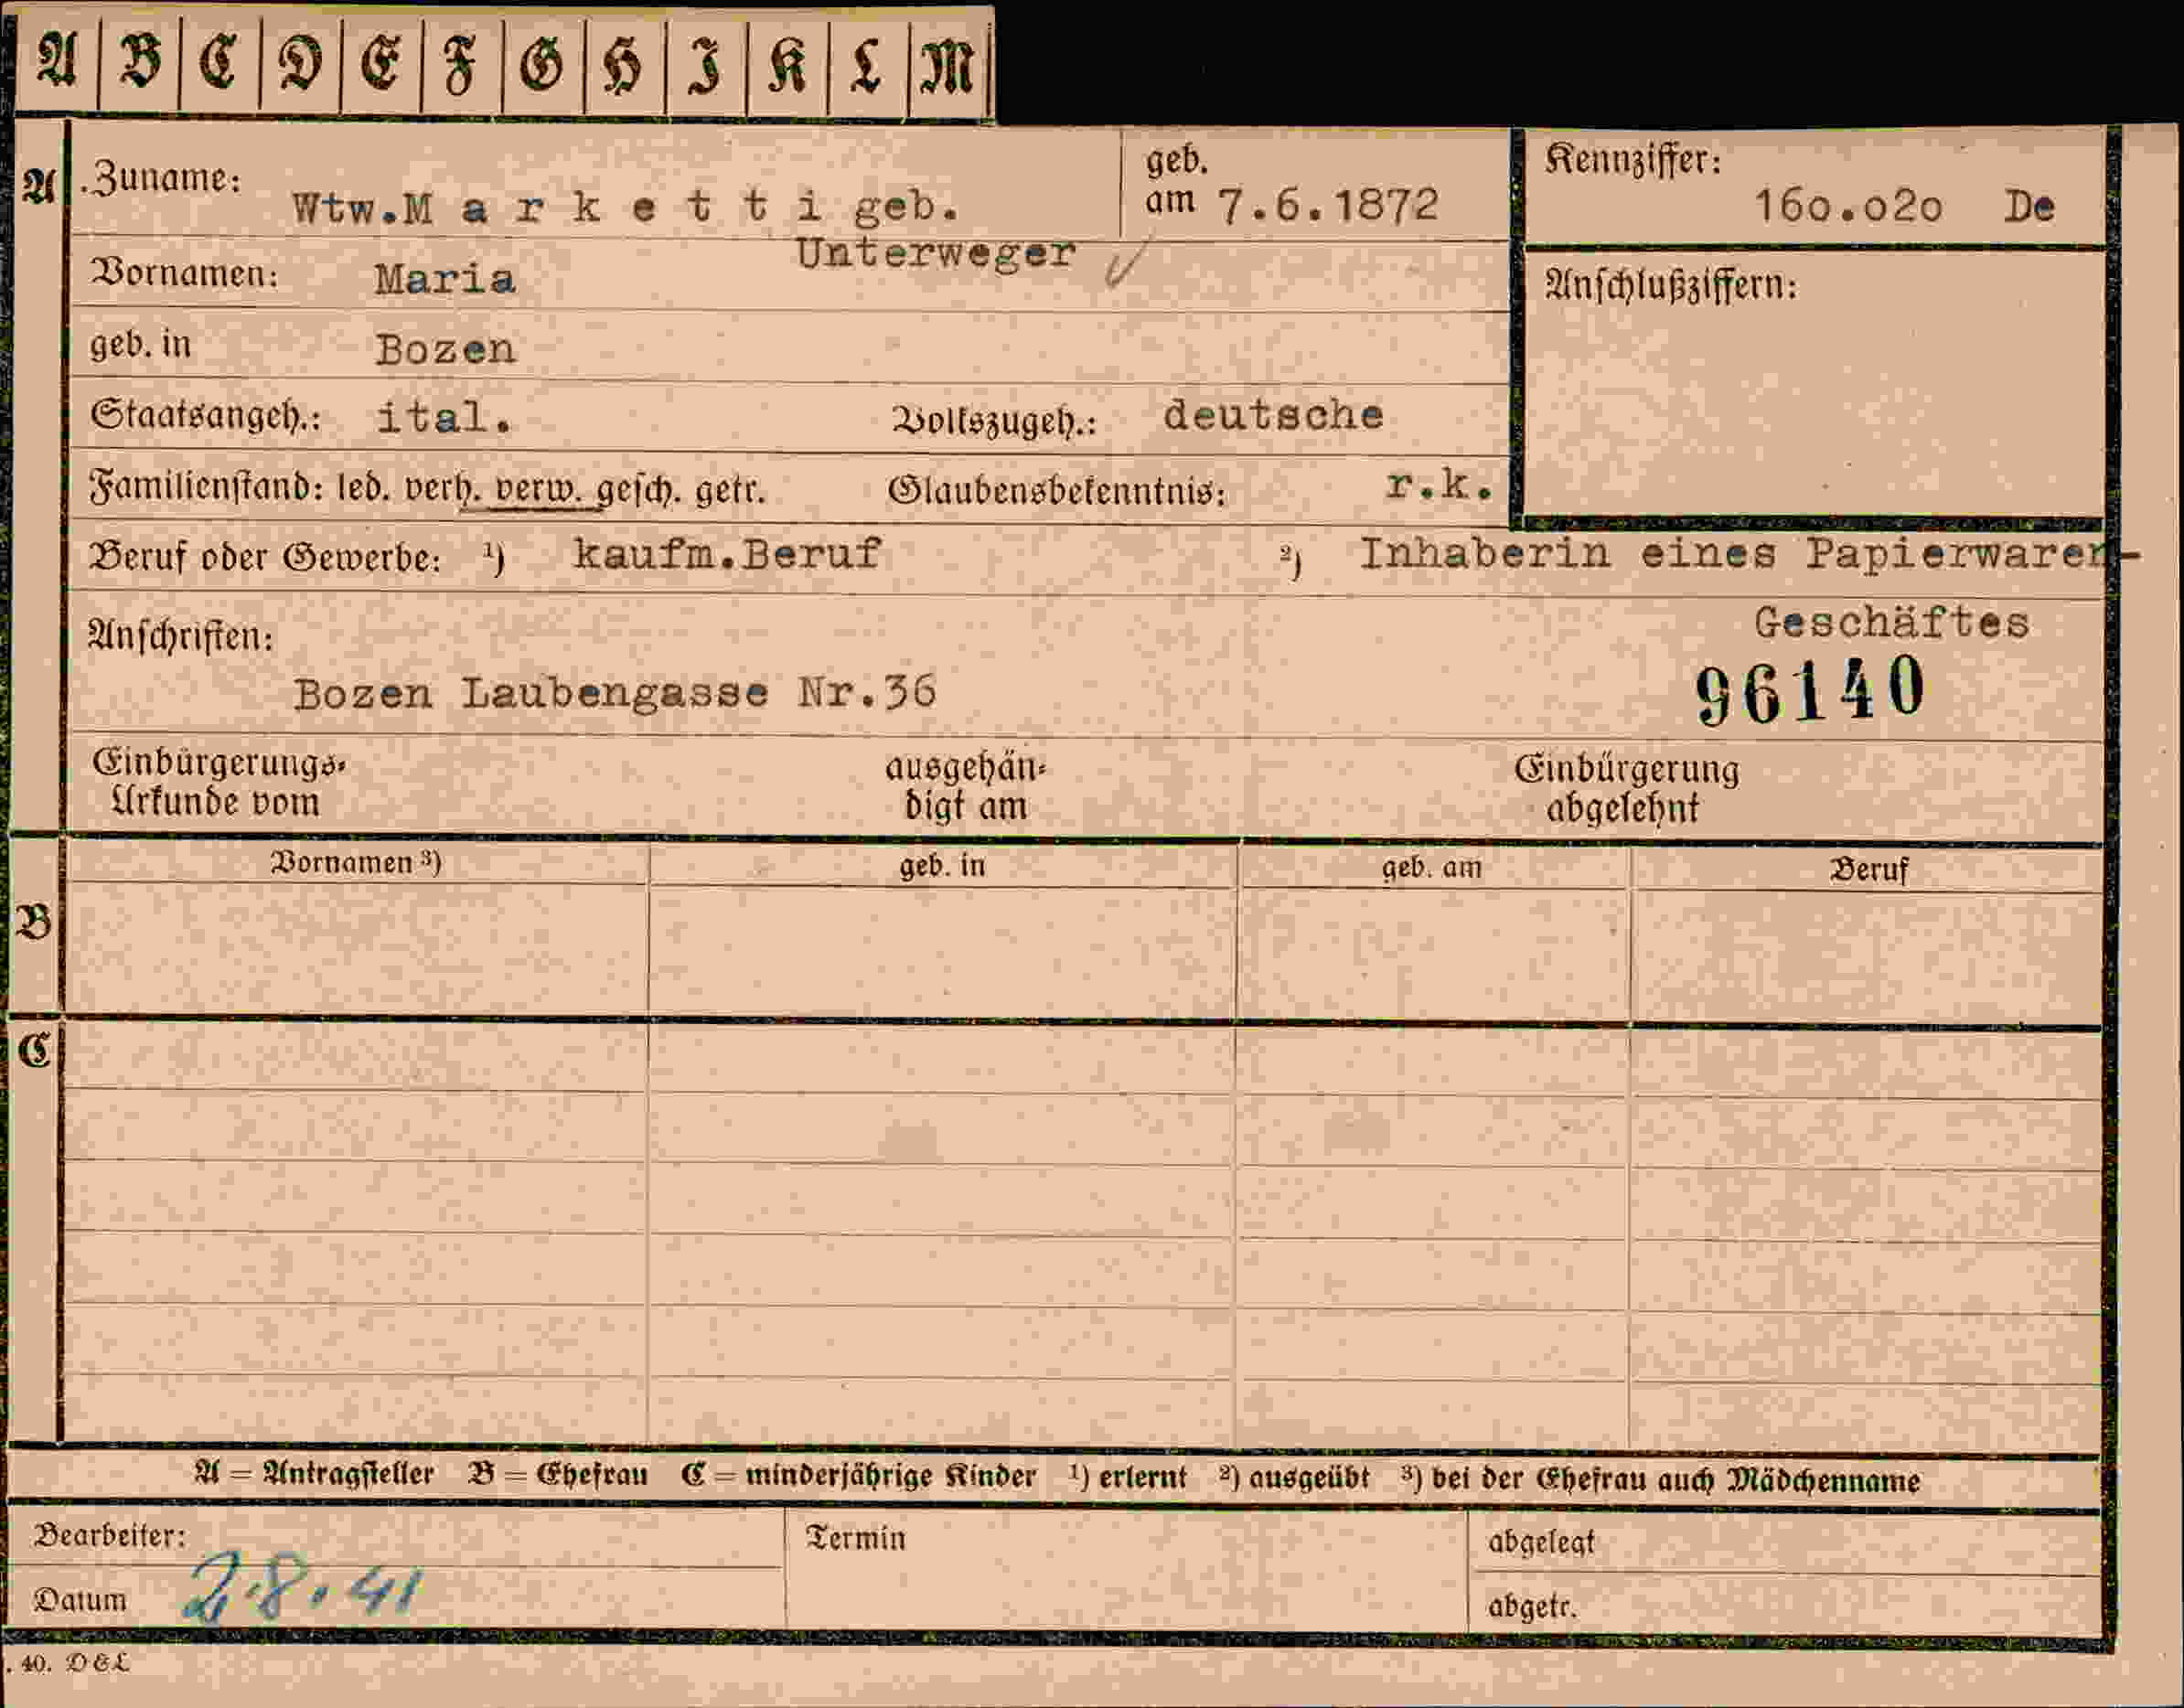 A B C D E F G H I K L M
A Zuname: Wtw.M a r k e t t i geb. geb. am 7.6.1872 Kennziffer: 160.020 De
Unterweger
Vornamen: Maria Anschlußziffern:
geb. in Bozen
Staatsangeh.: ital. Volkszugeh.: deutsche
Familienstand: led. verh. verw. gesch. getr. Glaubensbekenntnis: r.k.
Beruf oder Gewerbe: ¹) kaufm.Beruf ²) Inhaberin eines Papierwaren-
Geschäftes
Anschriften:
Bozen Laubengasse Nr.36 96140
Einbürgerungs- ausgehän- Einbürgerung
Urkunde vom digt am abgelehnt
Vornamen ³) geb. in geb. am Beruf
B
C
A = Antragsteller B = Ehefrau C = minderjährige Kinder ¹) erlernt ²) ausgeübt ³) bei der Ehefrau auch Mädchenname
Bearbeiter: Termin abgelegt
Datum 2.8.41 abgetr.
. 40. D&L